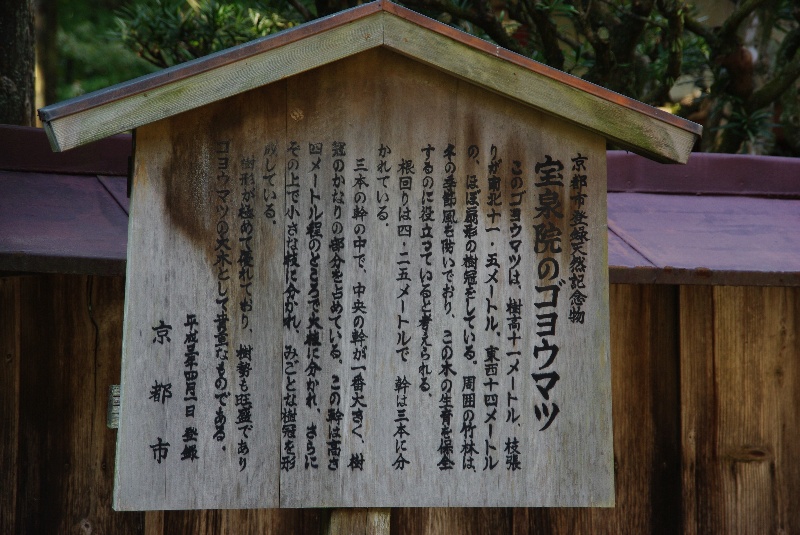 京都市登録天然記念物
宝泉院のゴヨウマツ
このゴヨウマツは、樹高十一メートル、枝張
りが南北十一・五メートル、東西十四メートル
の、ほぼ扇形の樹冠をしている。周囲の竹林は、
冬の季節風を防いでおり、この木の生育を保全
するのに役立っていると考えられる。
根回りは四・二五メートルで、幹は三本に分
かれている。
三本の幹の中で、中央の幹が一番大きく、樹
冠のかなりの部分を占めている。この幹は高さ
四メートル程のところで大枝に分かれ、さらに
その上で小さな枝に分かれ、みごとな樹冠を形
成している。
樹形が極めて優れており、樹勢も旺盛であり
ゴヨウマツの大木として貴重なものである。
平成三年四月一日 登録
京都市